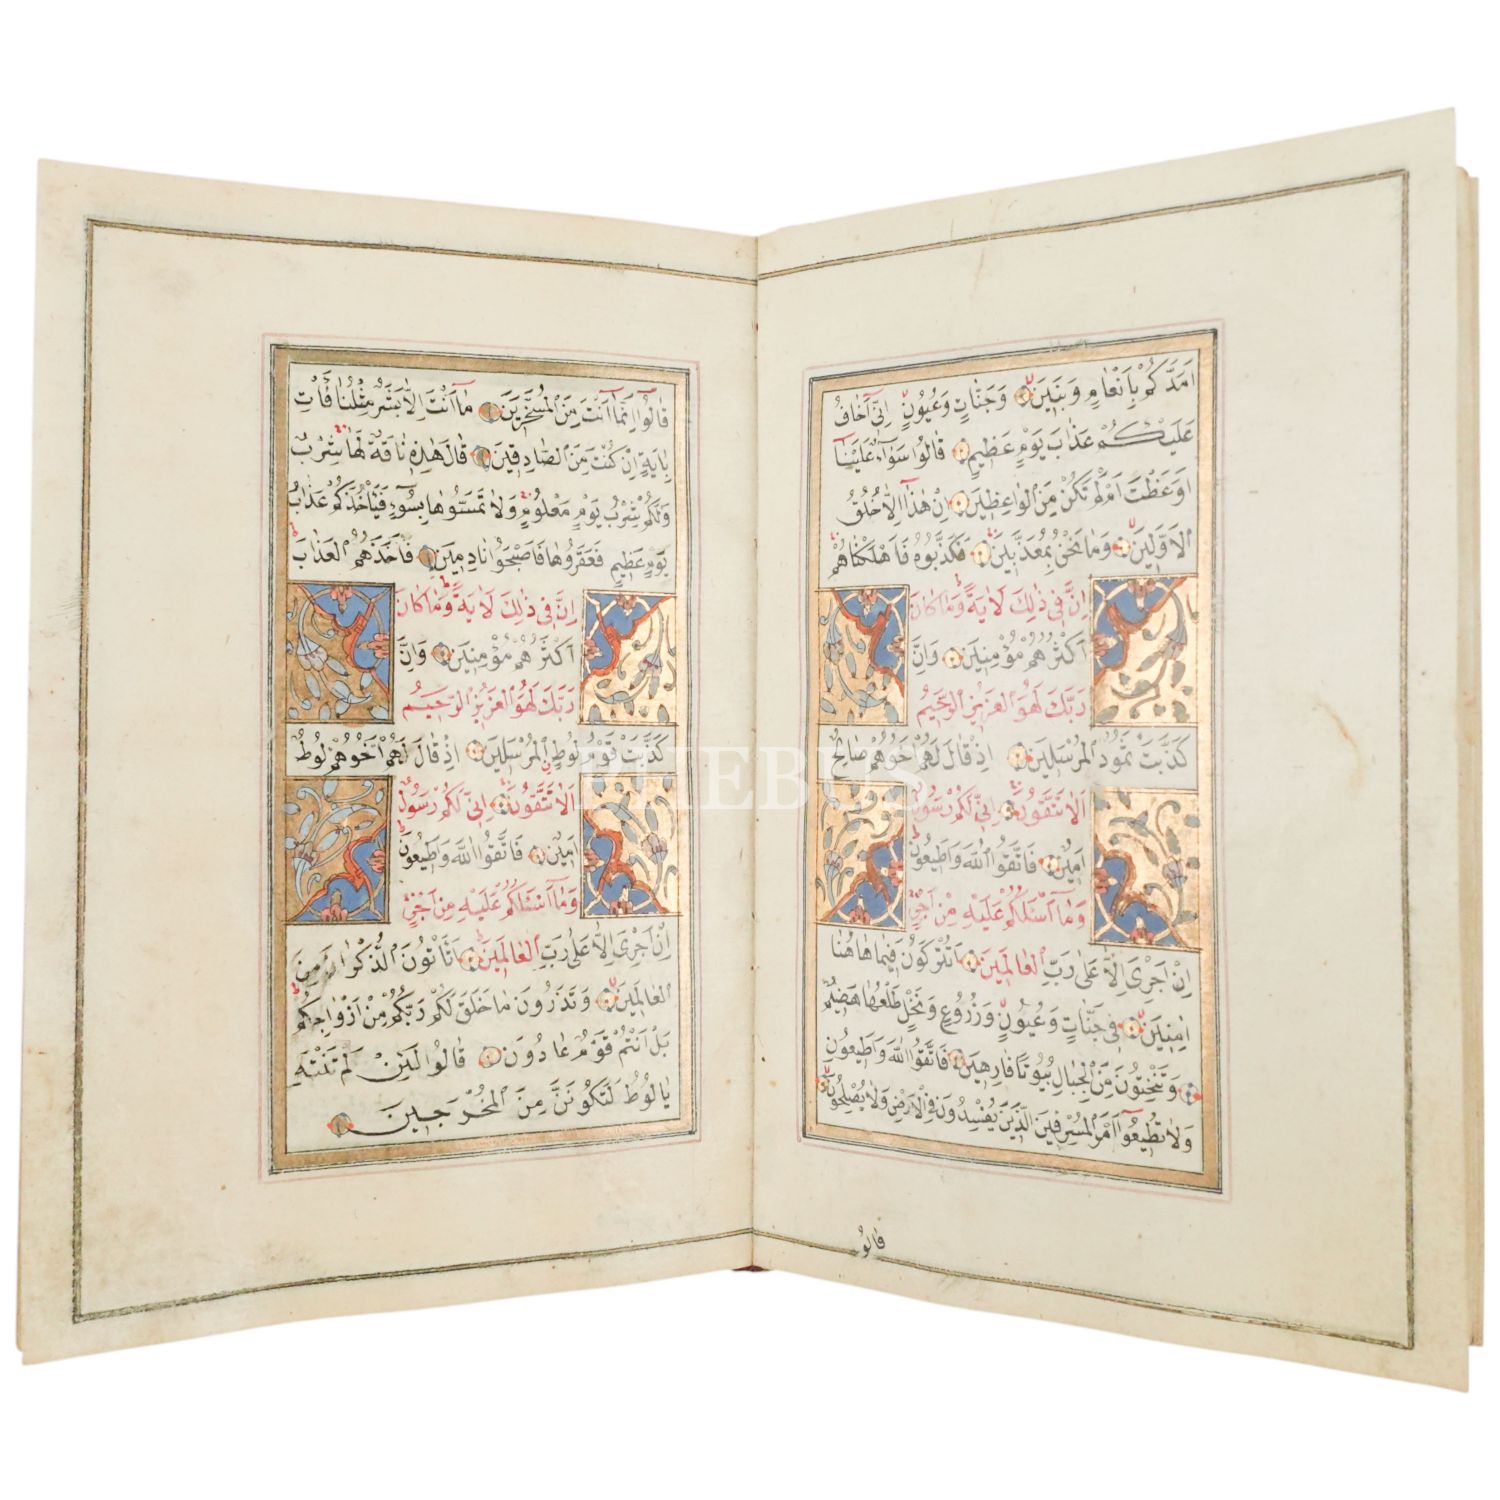 اَمَدَّكُمْ بِاَنْعَامٍ وَبَنِينَ وَجَنَّاتٍ وَعُيُونٍ اِنِّي اَخَافُ
عَلَيْكُمْ عَذَابَ يَوْمٍ عَظِيمٍ قَالُوا سَوَاءٌ عَلَيْنَا
اَوَعَظْتَ اَمْ لَمْ تَكُنْ مِنَ الْوَاعِظِينَ اِنْ هٰذَا اِلَّا خُلُقُ
الْاَوَّلِينَ وَمَا نَحْنُ بِمُعَذَّبِينَ فَكَذَّبُوهُ فَاَهْلَكْنَاهُمْ
اِنَّ فِي ذٰلِكَ لَاٰيَةً وَمَا كَانَ
اَكْثَرُهُمْ مُؤْمِنِينَ وَاِنَّ
رَبَّكَ لَهُوَ الْعَزِيزُ الرَّحِيمُ
كَذَّبَتْ ثَمُودُ الْمُرْسَلِينَ اِذْ قَالَ لَهُمْ اَخُوهُمْ صَالِحٌ
اَلَا تَتَّقُونَ اِنِّي لَكُمْ رَسُولٌ
اَمِينٌ فَاتَّقُوا اللّٰهَ وَاَطِيعُونِ
وَمَا اَسْـَٔلُكُمْ عَلَيْهِ مِنْ اَجْرٍ
اِنْ اَجْرِيَ اِلَّا عَلٰى رَبِّ الْعَالَمِينَ اَتُتْرَكُونَ فِيمَا هَاهُنَا
اٰمِنِينَ فِي جَنَّاتٍ وَعُيُونٍ وَزُرُوعٍ وَنَخْلٍ طَلْعُهَا هَضِيمٌ
وَتَنْحِتُونَ مِنَ الْجِبَالِ بُيُوتًا فَارِهِينَ فَاتَّقُوا اللّٰهَ وَاَطِيعُونِ
وَلَا تُطِيعُوا اَمْرَ الْمُسْرِفِينَ الَّذِينَ يُفْسِدُونَ فِي الْاَرْضِ وَلَا يُصْلِحُونَ
قَالُوا
قَالُوا اِنَّمَا اَنْتَ مِنَ الْمُسَحَّرِينَ مَا اَنْتَ اِلَّا بَشَرٌ مِثْلُنَا فَأْتِ
بِاٰيَةٍ اِنْ كُنْتَ مِنَ الصَّادِقِينَ قَالَ هٰذِهِ نَاقَةٌ لَهَا شِرْبٌ
وَلَكُمْ شِرْبُ يَوْمٍ مَعْلُومٍ وَلَا تَمَسُّوهَا بِسُوءٍ فَيَأْخُذَكُمْ عَذَابُ
يَوْمٍ عَظِيمٍ فَعَقَرُوهَا فَاَصْبَحُوا نَادِمِينَ فَاَخَذَهُمُ الْعَذَابُ
اِنَّ فِي ذٰلِكَ لَاٰيَةً وَمَا كَانَ
اَكْثَرُهُمْ مُؤْمِنِينَ وَاِنَّ
رَبَّكَ لَهُوَ الْعَزِيزُ الرَّحِيمُ
كَذَّبَتْ قَوْمُ لُوطٍ الْمُرْسَلِينَ اِذْ قَالَ لَهُمْ اَخُوهُمْ لُوطٌ
اَلَا تَتَّقُونَ اِنِّي لَكُمْ رَسُولٌ
اَمِينٌ فَاتَّقُوا اللّٰهَ وَاَطِيعُونِ
وَمَا اَسْـَٔلُكُمْ عَلَيْهِ مِنْ اَجْرٍ
اِنْ اَجْرِيَ اِلَّا عَلٰى رَبِّ الْعَالَمِينَ اَتَأْتُونَ الذُّكْرَانَ مِنَ
الْعَالَمِينَ وَتَذَرُونَ مَا خَلَقَ لَكُمْ رَبُّكُمْ مِنْ اَزْوَاجِكُمْ
بَلْ اَنْتُمْ قَوْمٌ عَادُونَ قَالُوا لَئِنْ لَمْ تَنْتَهِ
يَا لُوطُ لَتَكُونَنَّ مِنَ الْمُخْرَجِينَ
PHEBUS